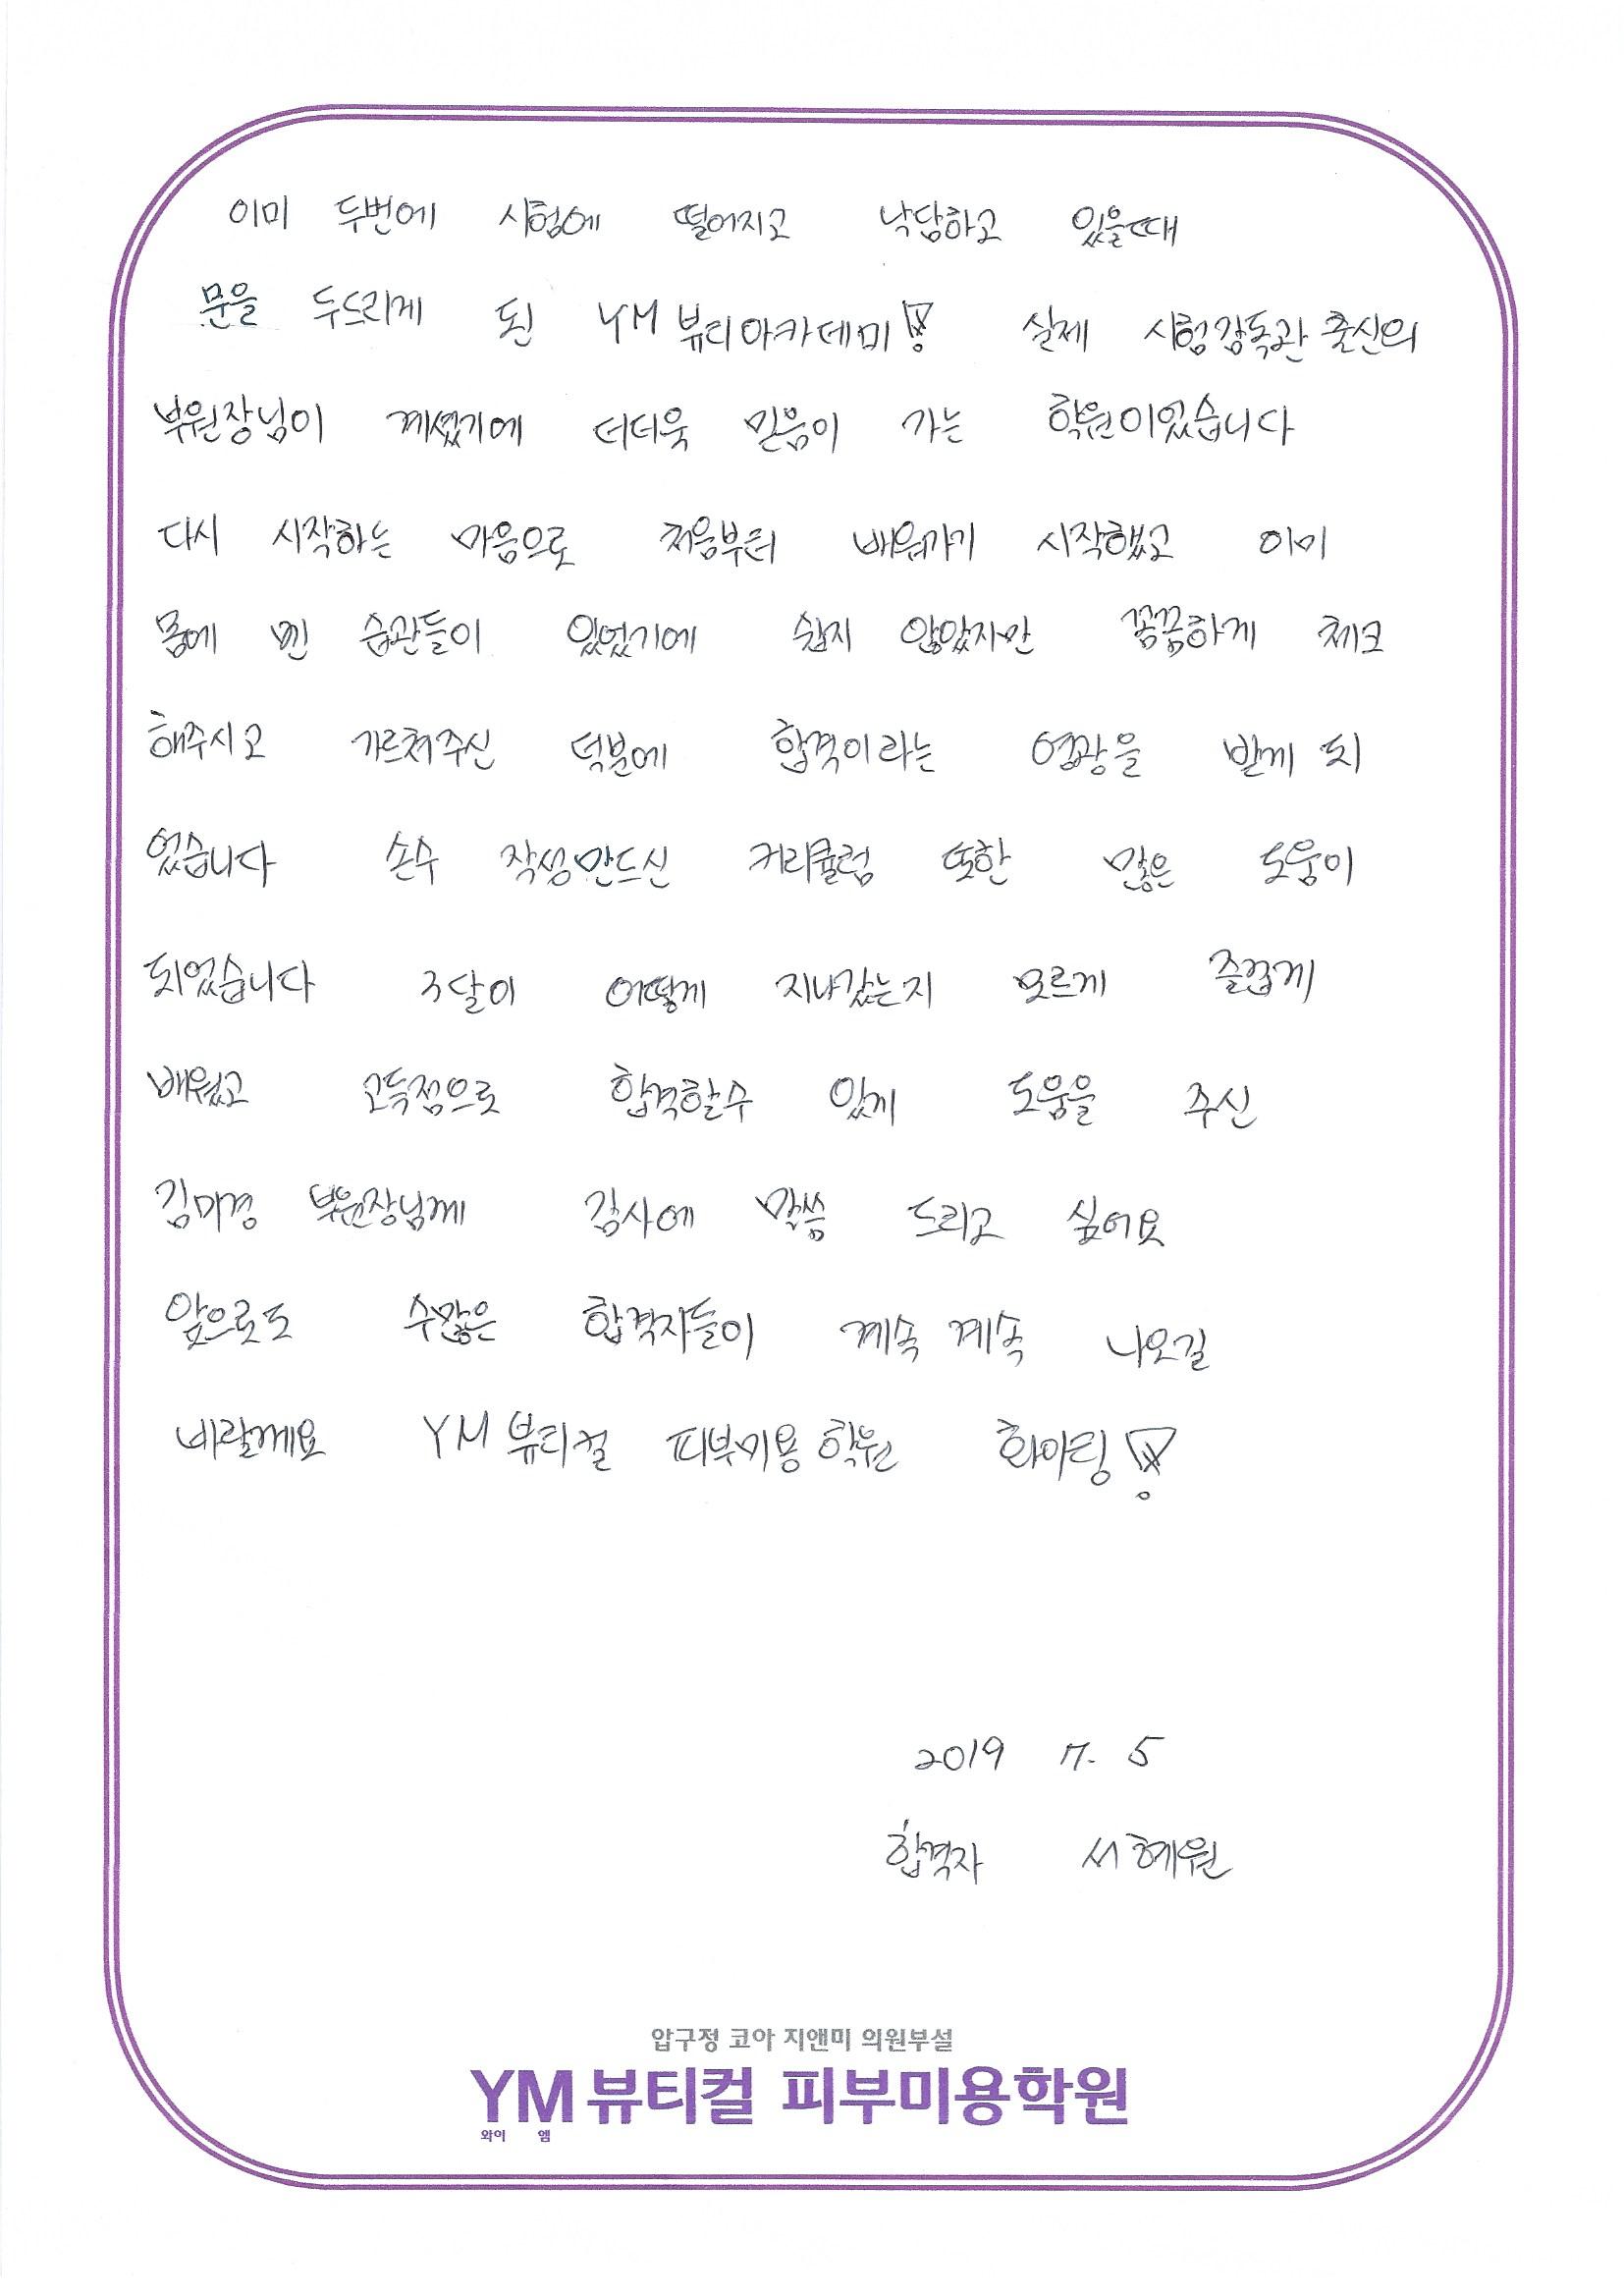 이미 두번에 시험에 떨어지고 낙담하고 있을때
문을 두드리게 된 YM 뷰티아카데미! 실제 시험감독관 출신의
부원장님이 계셨기에 더더욱 믿음이 가는 학원이었습니다
다시 시작하는 마음으로 처음부터 배워가기 시작했고 이미
몸에 벤 습관들이 있었기에 쉽지 않았지만 꼼꼼하게 체크
해주시고 가르쳐주신 덕분에 합격이라는 영광을 받게 되
었습니다 손수 작성만드신 커리큘럼 또한 많은 도움이
되었습니다 3달이 어떻게 지나갔는지 모르게 즐겁게
배웠고 고득점으로 합격할수 있게 도움을 주신
김미경 부원장님께 감사에 말씀 드리고 싶어요
앞으로도 수많은 합격자들이 계속 계속 나오길
바랄께요 YM 뷰티컬 피부미용 학원 화이팅!
2019 7. 5
합격자 서혜원
압구정 코아 지앤미 의원부설
YM뷰티컬 피부미용학원
와이 엠